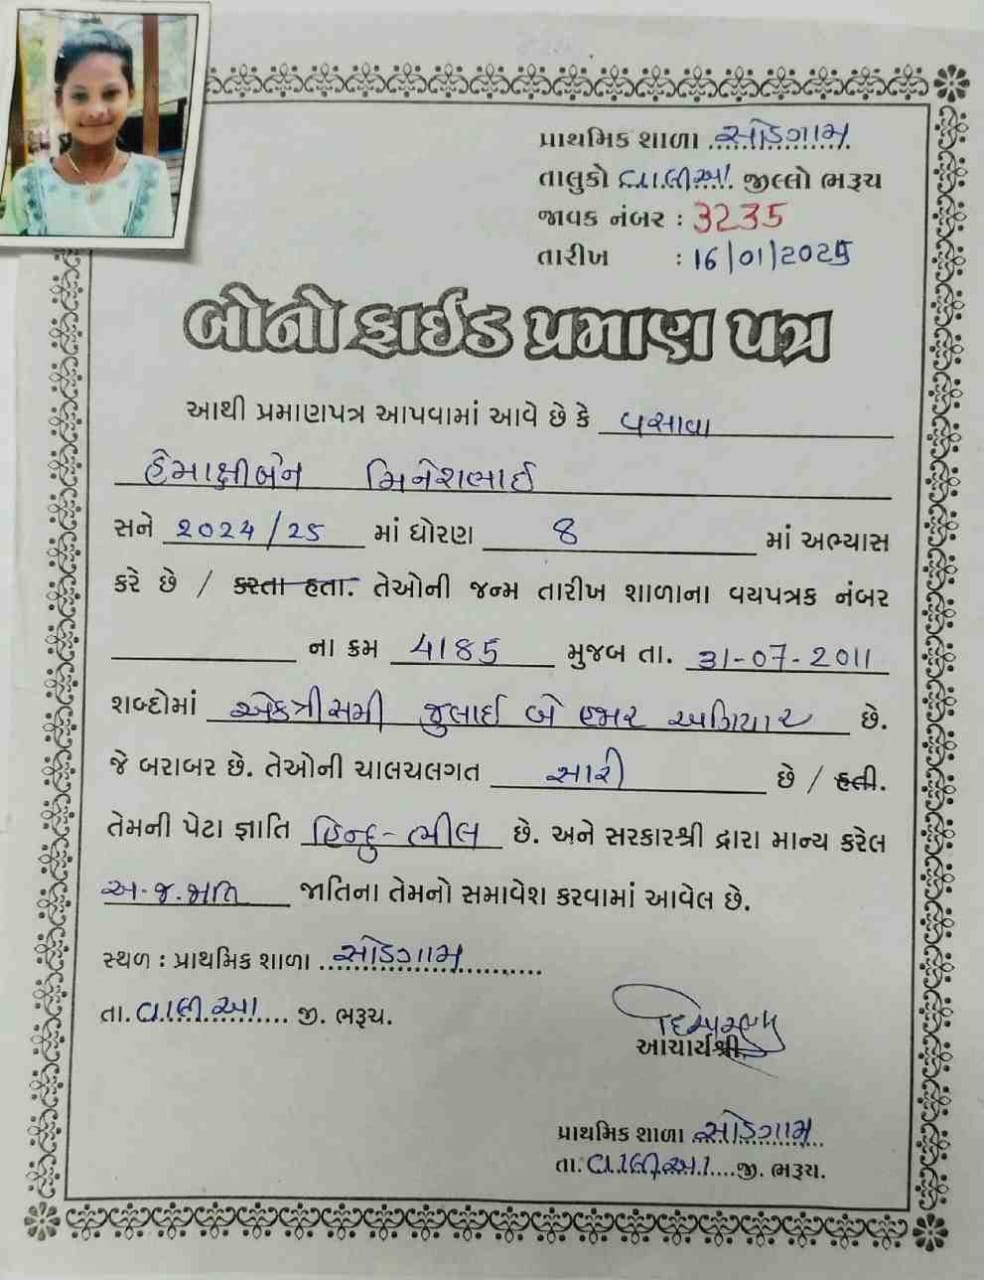 પ્રાથમિક શાળા સોડગામ
તાલુકો વાલીઆ જીલ્લો ભરૂચ
જાવક નંબર : 3235
તારીખ : 16/01/2025
બોનો ફાઈડ પ્રમાણ પત્ર
આથી પ્રમાણપત્ર આપવામાં આવે છે કે વસાવા
હેમાક્ષીબેન મિનેશભાઈ
સને ૨૦૨4/૨5 માં ધોરણ 8 માં અભ્યાસ
કરે છે / કરતા હતા. તેઓની જન્મ તારીખ શાળાના વયપત્રક નંબર
ના ક્રમ 4185 મુજબ તા. 31-07-2011
શબ્દોમાં એકત્રીસમી જુલાઈ બે હજાર અગિયાર છે.
જે બરાબર છે. તેઓની ચાલચલગત સારી છે / હતી.
તેમની પેટા જ્ઞાતિ હિન્દુ-ભીલ છે. અને સરકારશ્રી દ્વારા માન્ય કરેલ
અ.જ.જાતિ જાતિના તેમનો સમાવેશ કરવામાં આવેલ છે.
સ્થળ : પ્રાથમિક શાળા સોડગામ
તા. વાલીઆ જી. ભરૂચ.
આચાર્યશ્રી
પ્રાથમિક શાળા સોડગામ
તા. વાલીઆ જી. ભરૂચ.